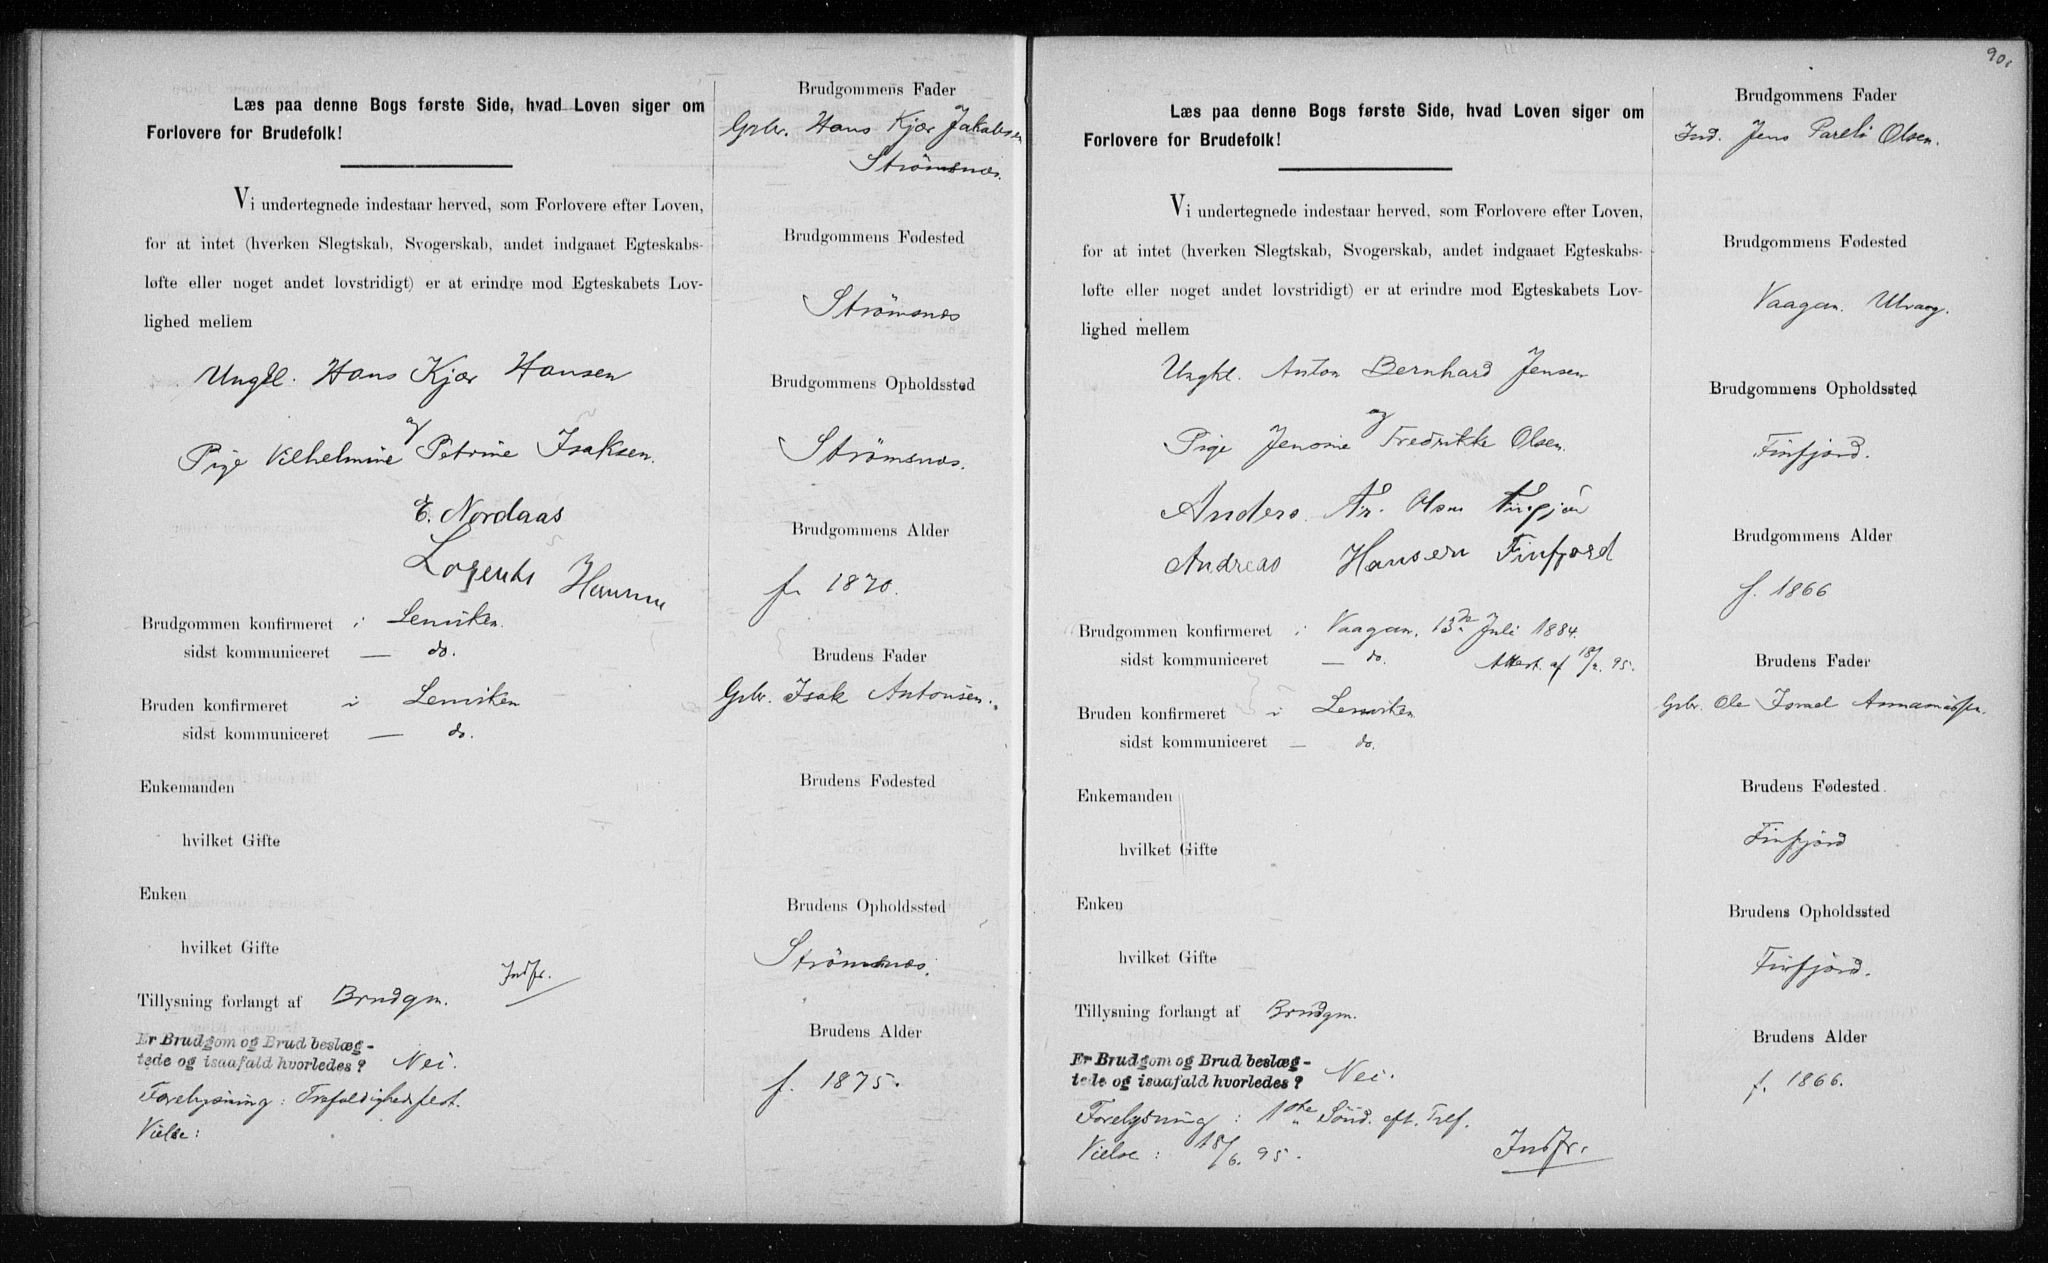 Læs paa denne Bogs første Side, hvad Loven siger om
Forlovere for Brudefolk!
Vi undertegnede indestaar herved, som Forlovere efter Loven,
for at intet (hverken Slegtskab, Svogerskab, andet indgaaet Egteskabs-
løfte eller noget andet lovstridigt) er at erindre mod Egteskabets Lov-
lighed mellem
Ungkl. Hans Kjær Hansen
og
Pige Vilhelmine Petrine Isaksen.
E. Nordaas
Lorents Hansen
Brudgommen konfirmeret i Lenviken.
sidst kommuniceret — do.
Bruden konfirmeret i Lenviken
sidst kommuniceret — do.
Enkemanden
hvilket Gifte
Enken
hvilket Gifte
Indfr.
Tillysning forlangt af Brudgm.
Er Brudgom og Brud beslæg-
tede og isaafald hvorledes? Nei.
Forelysning: Trefoldighedsfest.
Vielse:
Brudgommens Fader
Gbr. Hans Kjær Jakobsen
Strömsnæs.
Brudgommens Fødested
Strömsnæs
Brudgommens Opholdssted
Strömsnæs.
Brudgommens Alder
f. 1870.
Brudens Fader
Gbr. Isak Antonsen.
Brudens Fødested
Brudens Opholdssted
Strömsnæs.
Brudens Alder
f. 1875.
90.
Læs paa denne Bogs første Side, hvad Loven siger om
Forlovere for Brudefolk!
Vi undertegnede indestaar herved, som Forlovere efter Loven,
for at intet (hverken Slegtskab, Svogerskab, andet indgaaet Egteskabs-
løfte eller noget andet lovstridigt) er at erindre mod Egteskabets Lov-
lighed mellem
Ungkl. Anton Bernhard Jensen
og
Pige Jensine Fredrikke Olsen.
Anders Fr. Olsen
Andreas Hansen Finfjord
Brudgommen konfirmeret i Vaagan, 13de Juli 1884.
sidst kommuniceret — do. Attest af 95.
Bruden konfirmeret i Lenviken
sidst kommuniceret — do.
Enkemanden
hvilket Gifte
Enken
hvilket Gifte
Tillysning forlangt af Brudgm.
Er Brudgom og Brud beslæg-
tede og isaafald hvorledes? Nei.
Forelysning: 1ste Sönd. eft. Tref.
Vielse: 18/6. 95. Indfr.
Brudgommens Fader
Ind. Jens Pareli Olsen.
Brudgommens Fødested
Vaagan. Ulvaag.
Brudgommens Opholdssted
Finfjord.
Brudgommens Alder
f. 1866
Brudens Fader
Gbr. Ole Israel
Brudens Fødested.
Finfjord
Brudens Opholdssted
Finfjord.
Brudens Alder
f. 1866.